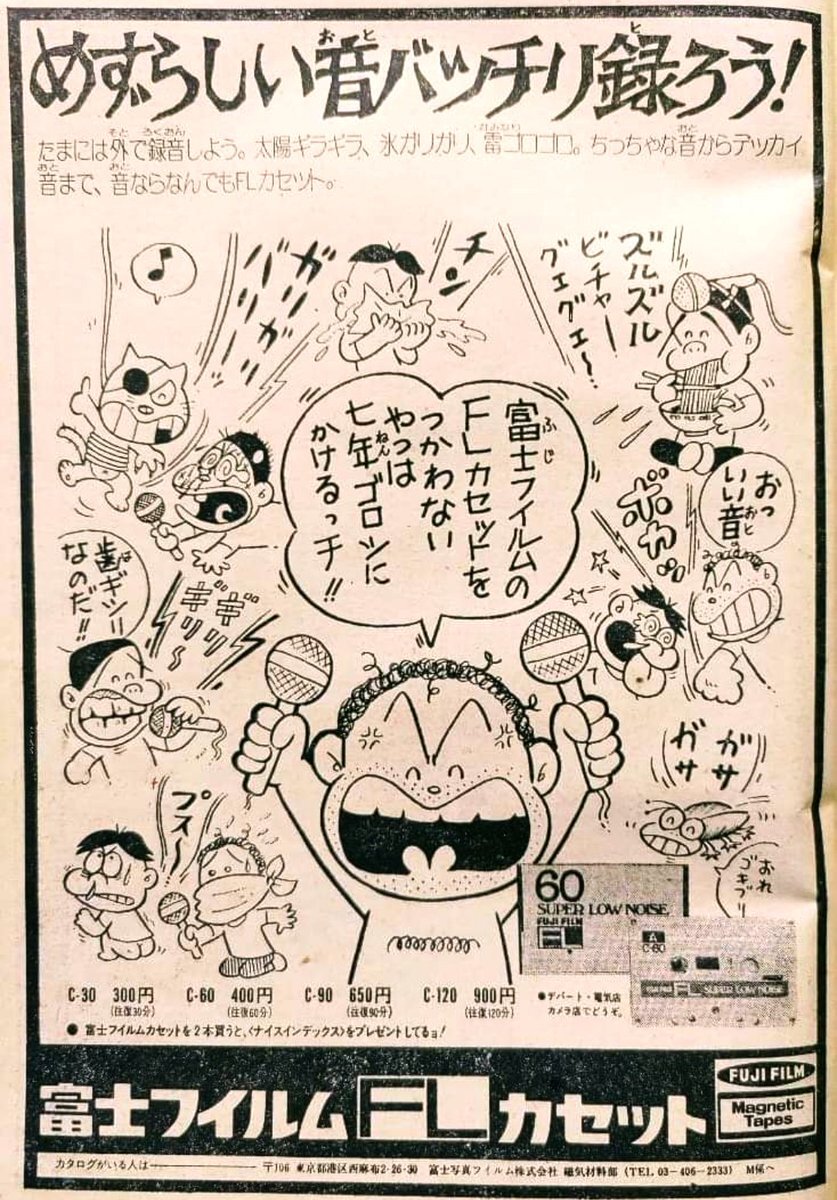 めずらしい音バッチリ録ろう!
たまには外で録音しよう。太陽ギラギラ、氷ガリガリ、雷ゴロゴロ。ちっちゃな音からデッカイ
音まで、音ならなんでもFLカセット。
ズルズル
ビチャー
グェグェ〜…
チン
ガリガリ
バリバリ
富士フイルムの
FLカセットを
つかわない
やつは
七年ゴロシに
かけるっチ!!
おっ
いい音
ボカッ
歯ギシリ
なのだ!!
ギギ
リリ〜
ガサ
ガサ
おれ
ゴキブリ
プス〜
60
SUPER LOW NOISE
FUJI FILM
FL
A
C-60
FL SUPER LOW NOISE
C-30 300円 C-60 400円 C-90 650円 C-120 900円
(往復30分) (往復60分) (往復90分) (往復120分)
●デパート・電気店
カメラ店でどうぞ。
● 富士フイルムカセットを2本買うと、〈ナイスインデックス〉をプレゼントしてるョ!
富士フイルム FL カセット
FUJI FILM
Magnetic
Tapes
カタログがいる人は 〒106 東京都港区西麻布2-26-30 富士写真フイルム株式会社 磁気材料部 (TEL 03-406-2333) M係へ